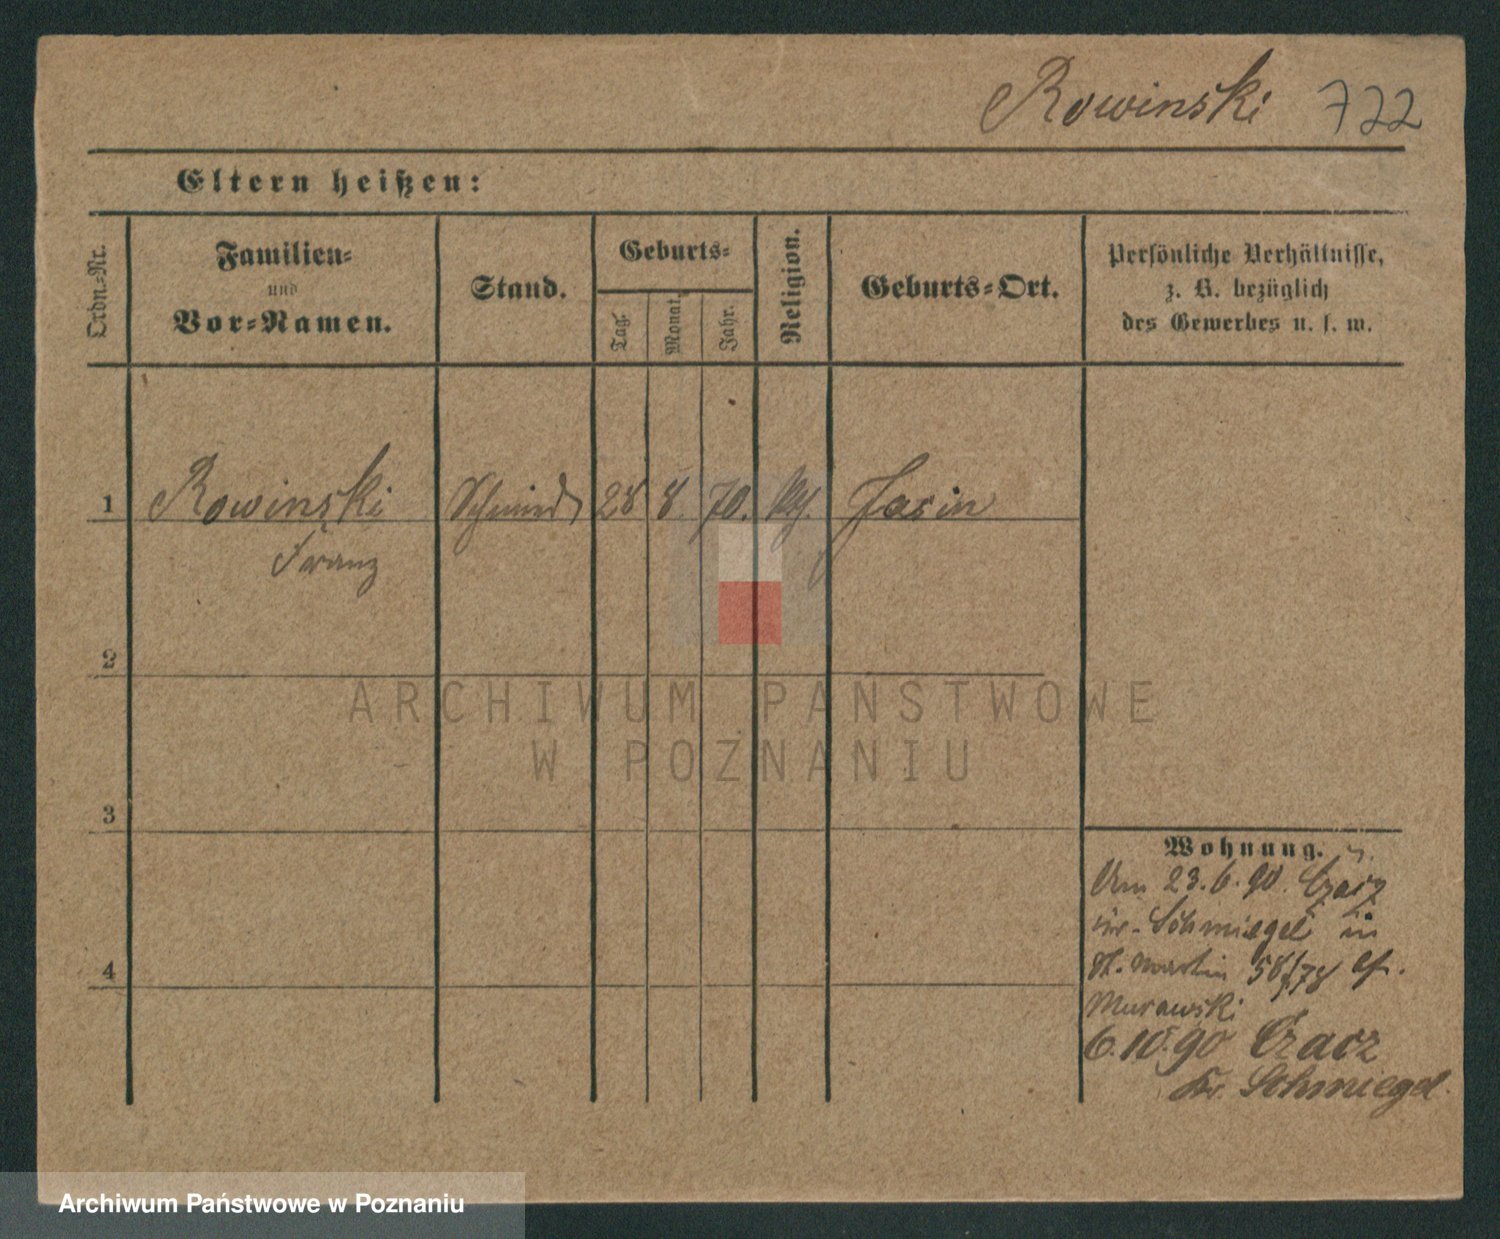 Rowinski 722
Eltern heißen:
Ordn.-Nr.
Familien-
und
Vor-Namen.
Stand.
Geburts-
Tag.
Monat.
Jahr.
Religion.
Geburts-Ort.
Persönliche Verhältnisse,
z. B. bezüglich
des Gewerbes u. s. w.
1 Rowinski Schmied 28 8. 70. Jasin
Franz
2
3
4
Wohnung.
Am 23.6.90. Czacz
Schmiegel in
St. Martin 58/78
Murawski
6.10.90 Czacz
Kr. Schmiegel.
ARCHIWUM PAŃSTWOWE
W POZNANIU
Archiwum Państwowe w Poznaniu